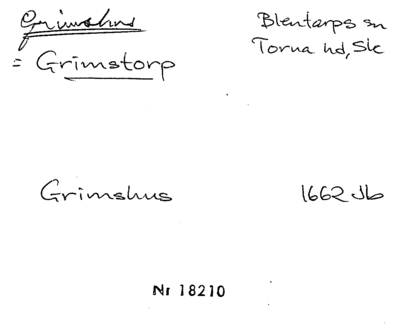 Grimshus
Blentarps sn
= Grimstorp
Torna hd, Sk
Grimshus 1662 Jb
Nr 18210